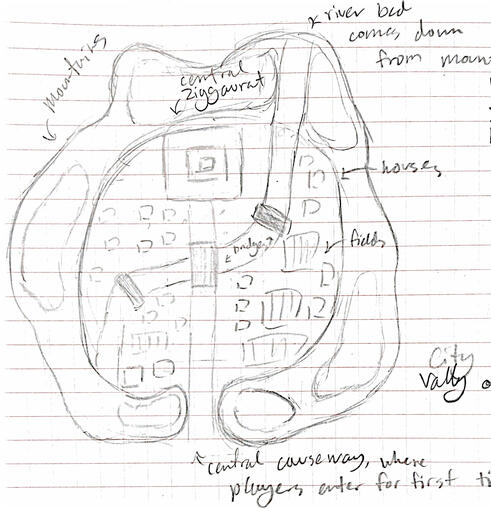 river bed
comes down
from moun
Mountains
central
Ziggaurat
houses
bridges
fields
City
Vally o
central causeway, where
players enter for first ti